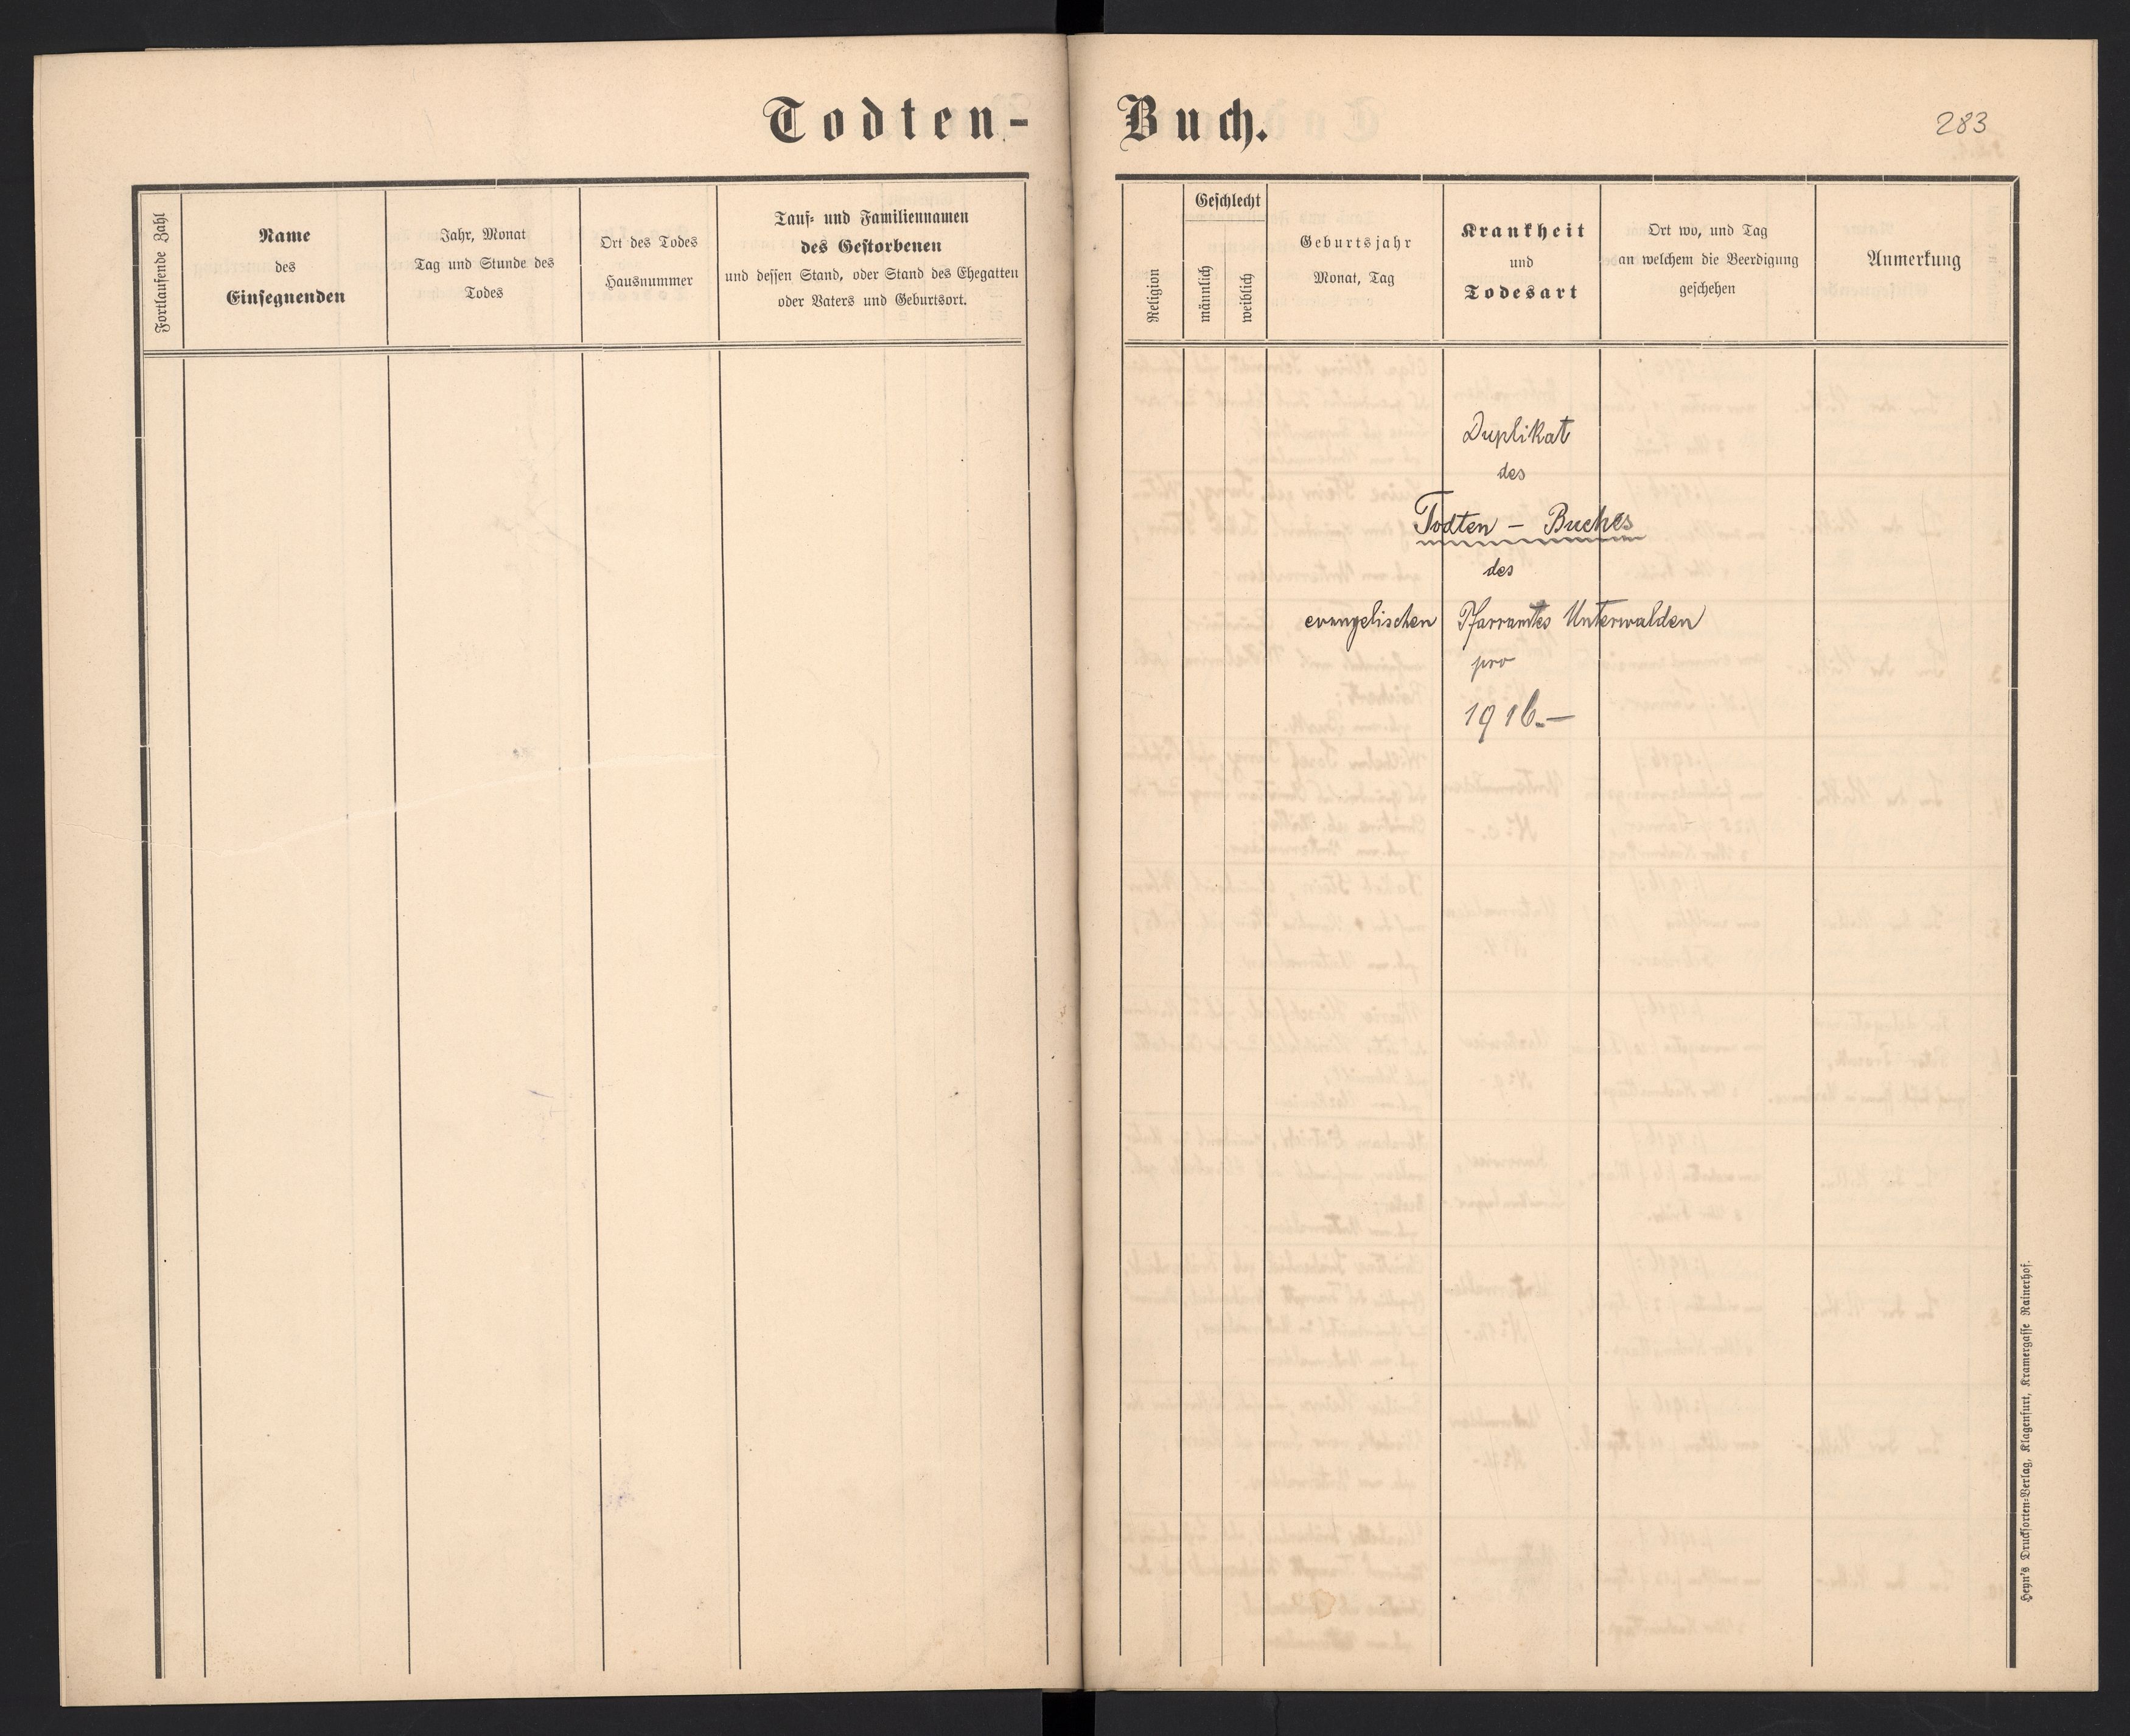 Todten-Buch.
283
Fortlaufende Zahl
Name
des
Einsegnenden
Jahr, Monat
Tag und Stunde des
Todes
Ort des Todes
Hausnummer
Tauf- und Familiennamen
des Gestorbenen
und dessen Stand, oder Stand des Ehegatten
oder Vaters und Geburtsort.
Religion
Geschlecht
männlich
weiblich
Geburtsjahr
Monat, Tag
Krankheit
und
Todesart
Ort wo, und Tag
an welchem die Beerdigung
geschehen
Anmerkung
Duplikat
des
Todten - Buches
des
evangelischen Pfarramtes Unterwalden
pro
1916.-
Heyn's Drucksorten-Verlag, Klagenfurt, Kramergasse Rainerhof.